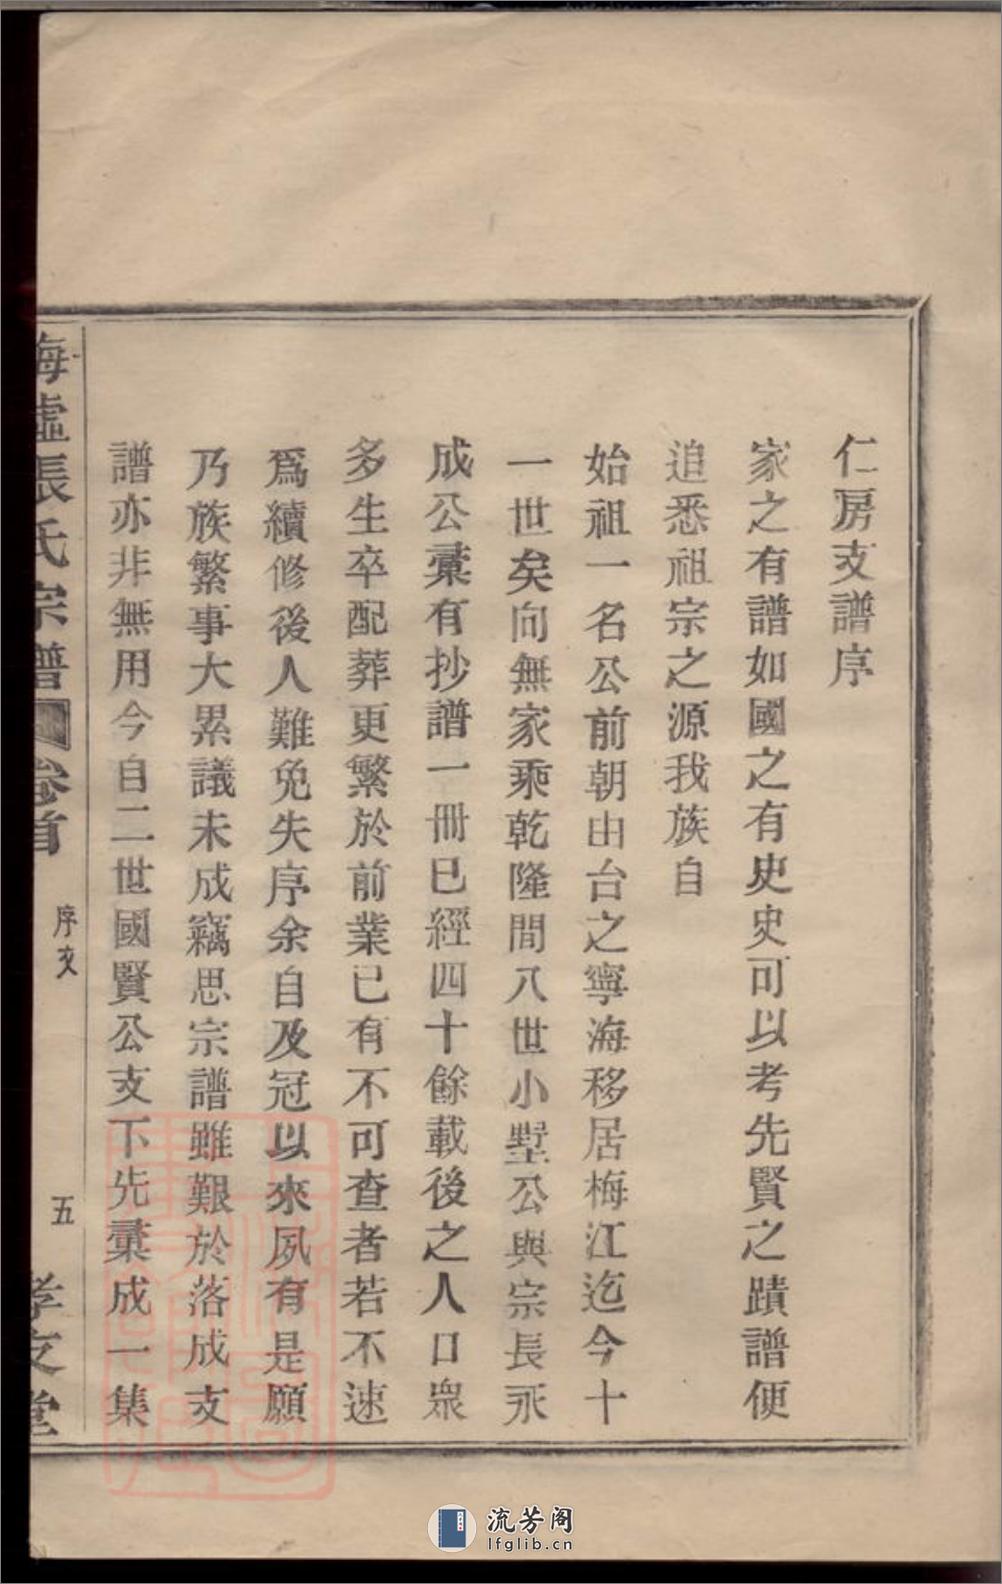 仁房支譜序
家之有譜如國之有史史可以考先賢之蹟譜便
追悉祖宗之源我族自
始祖一名公前朝由台之寧海移居梅江迄今十
一世矣向無家乘乾隆間八世小墅公與宗長永
成公彚有抄譜一冊已經四十餘載後之人口眾
多生卒配葬更繁於前業已有不可查者若不速
爲續修後人難免失序余自及冠以來夙有是願
乃族繁事大累議未成竊思宗譜雖艱於落成支
譜亦非無用今自二世國賢公支下先彚成一集
海虛張氏宗譜 卷首 序文 五 孝友堂
流芳阁
lfglib.cn